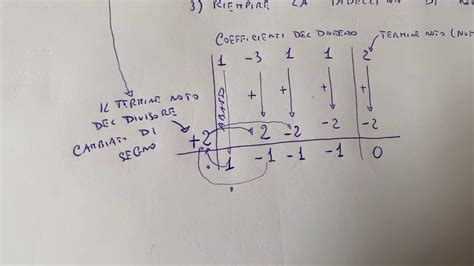 3) RIEMPIRE LA TABELLINA DI
COEFFICIENTI DEL DIVIDENDO
TERMINE NOTO
1 -3 1 1 2
ABBASSO + + + +
IL TERMINE NOTO
DEL DIVISORE
CAMBIATO DI
SEGNO
+2 2 -2 -2 -2
1 -1 -1 -1 0